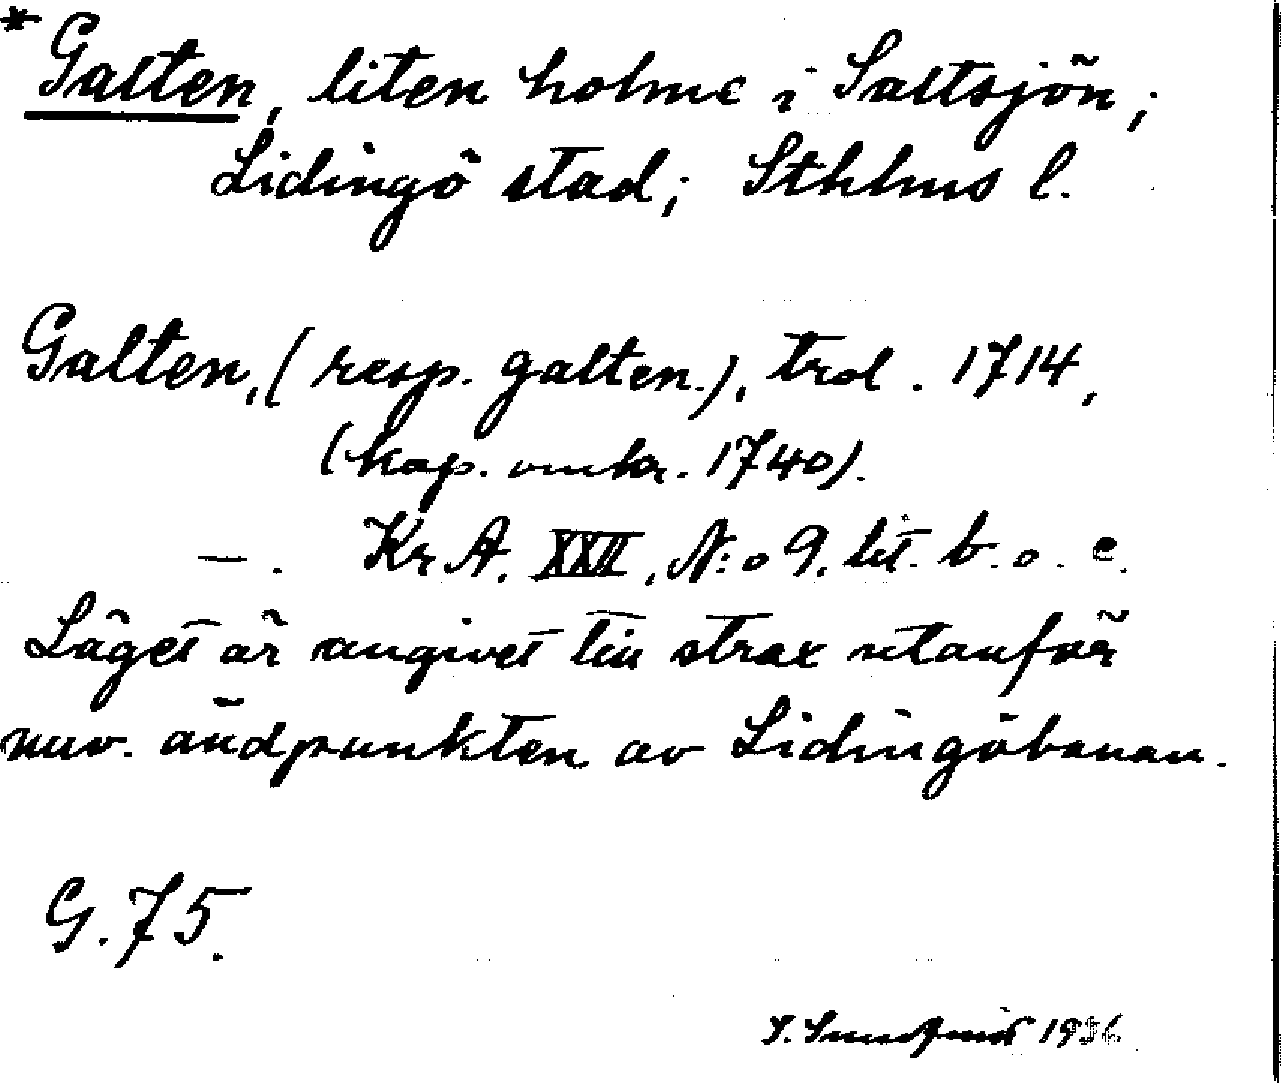 *Galten, liten holme i Saltsjön;
Lidingö stad; Sthlms l.
Galten, (resp. galten.), trol. 1714,
(kop. omkr. 1740).
—. Kr.A. XXII, N:o 9. lit. b. o. c.
Läget är angivet till strax utanför
nuv. ändpunkten av Lidingöbanan.
G. 75.
1936